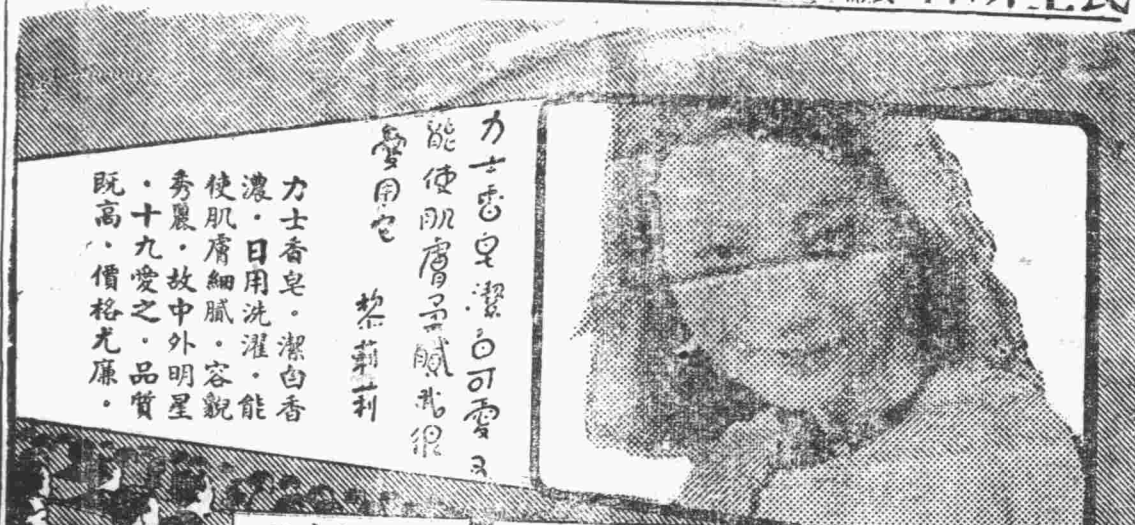 力士香皂潔白可愛又
能使肌膚柔膩我很
愛用它
黎莉莉
力士香皂。潔白香
濃。日用洗濯。能
使肌膚細膩。容貌
秀麗。故中外明星
。十九愛之。品質
既高。價格尤廉。